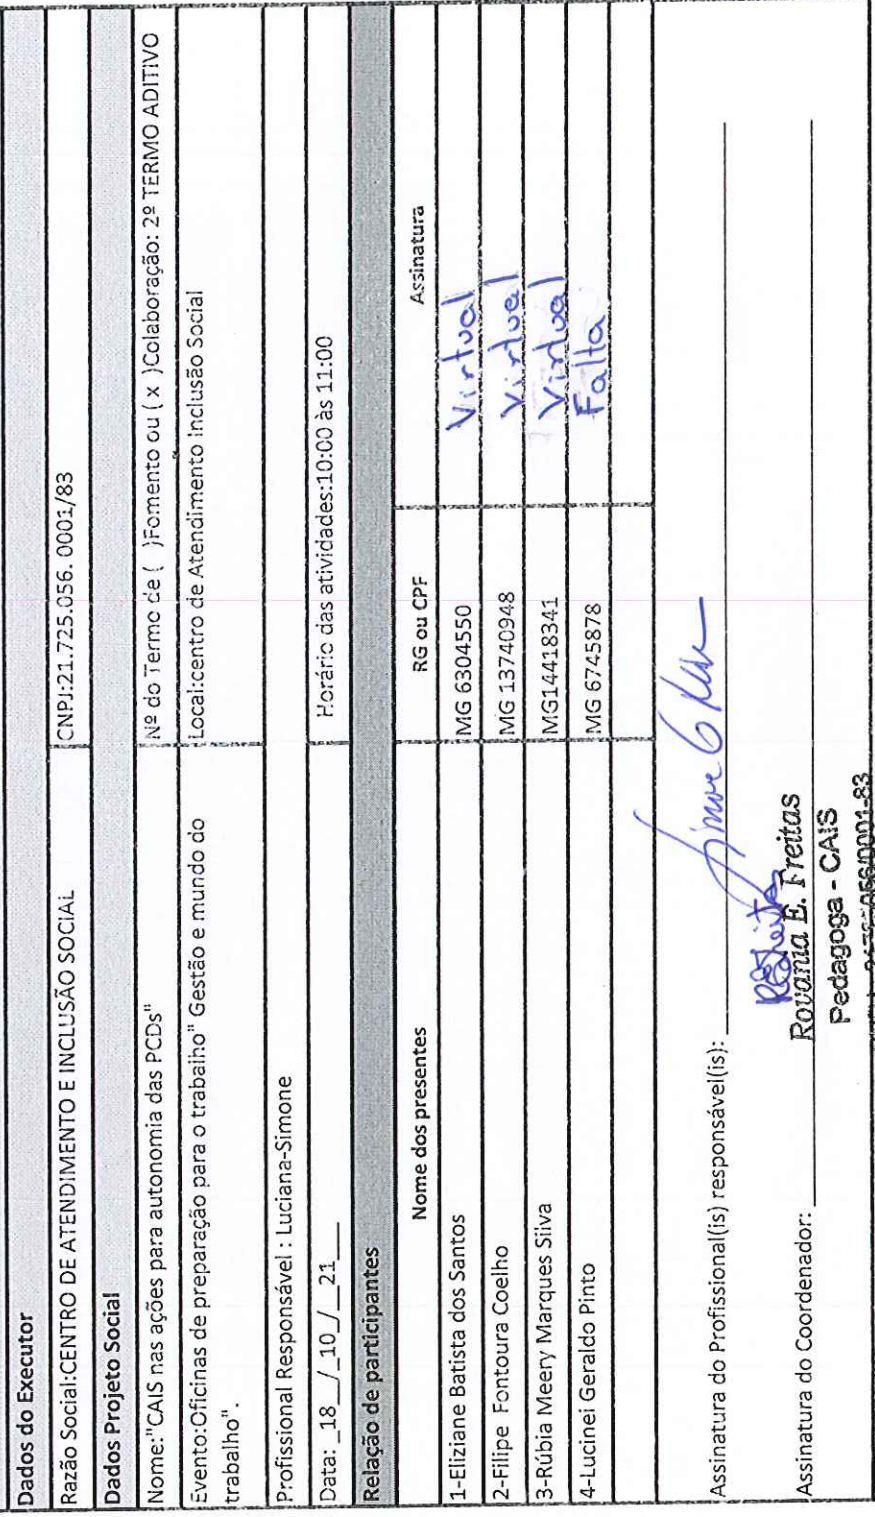 Dados do Executor
Razão Social:CENTRO DE ATENDIMENTO E INCLUSÃO SOCIAL CNPJ:21.725.056. 0001/83
Dados Projeto Social
Nome:"CAIS nas ações para autonomia das PCDs" Nº do Termo de ( )Fomento ou ( x )Colaboração: 2º TERMO ADITIVO
Evento:Oficinas de preparação para o trabalho" Gestão e mundo do trabalho". Local:centro de Atendimento Inclusão Social
Profissional Responsável : Luciana-Simone
Data: _18__/_10_/__21___ Horário das atividades:10:00 às 11:00
Relação de participantes
Nome dos presentes RG ou CPF Assinatura
1-Eliziane Batista dos Santos MG 6304550 Virtual
2-Filipe Fontoura Coelho MG 13740948 Virtual
3-Rúbia Meery Marques Silva MG14418341 Virtual
4-Lucinei Geraldo Pinto MG 6745878 Falta
Assinatura do Profissional(is) responsável(is):
Assinatura do Coordenador:
Rovania E. Freitas
Pedagoga - CAIS